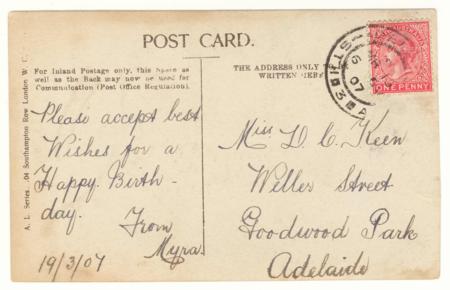 POST CARD.
For Inland Postage only, this Space as
well as the Back may now be used for
Communication (Post Office Regulation).
THE ADDRESS ONLY TO
WRITTEN HERE
Please accept best
Wishes for a
Happy Birth-
day. From
Myra.
19/3/07
Miss D. C. Keen
Weller Street
Goodwood Park
Adelaide
ONE PENNY
07
A. L. Series. 04 Southampton Row London W. C.